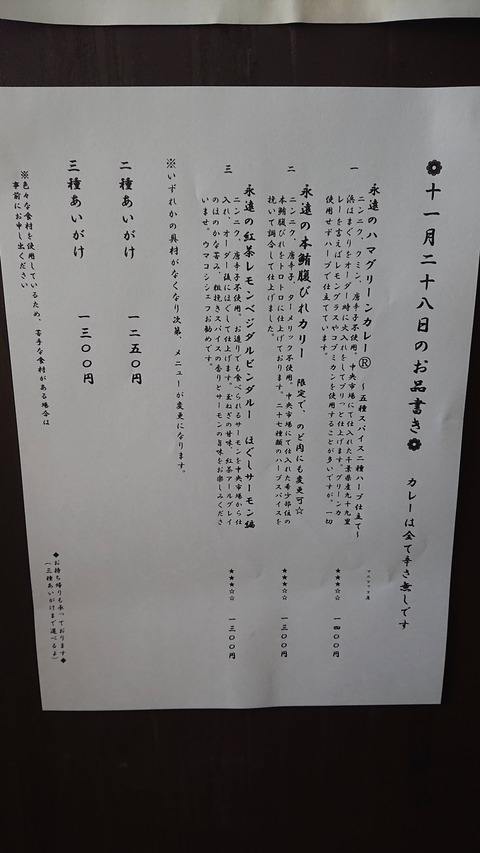 十一月二十八日のお品書き
カレーは全て辛さ無しです
一
永遠のハマグリーンカレー® ～五種スパイス二種ハーブ仕立て～
ニンニク、クミン、唐辛子不使用。中央市場にて仕入れた千葉県産九十九里
浜はまぐりをオーダー時に火入れをしてプリっと仕上げます。グリーンカ
レーと言えばレモングラスやコブミカンを使用することが多いですが、一切
使用せずハーブで仕立てています。
★★★☆☆ 一四〇〇円
二
永遠の本鮪腹びれカリー 限定で、のど肉にも変更可☆
ニンニク、唐辛子、ターメリック不使用。中央市場にて仕入れた希少部位の
本鮪腹びれをトロトロに仕上げております。二十七種類のハーブスパイスを
挽いて調合して仕上げました。
★★★☆☆ 一三〇〇円
三
永遠の紅茶レモンベジダルビンダルー ほぐしサーモン編
ニンニク、唐辛子不使用。お造りでも食べられるサーモンを中央市場から仕
入れ、オーダー後にほぐして仕上げます。玉ねぎの甘味、紅茶アールグレイ
のほのかな苦み、粗挽きスパイスの香りとサーモンの旨味をお楽しみくださ
いませ。ウマコシェフお勧めです。
★★★☆☆ 一三〇〇円
※いずれかの具材がなくなり次第、メニューが変更になります。
二種あいがけ 一二五〇円
三種あいがけ 一三〇〇円
※色々な食材を使用しているため、苦手な食材がある場合は
事前にお申し出ください
◆お持ち帰りも承っております◆
（三種あいがけまで選べるよ）